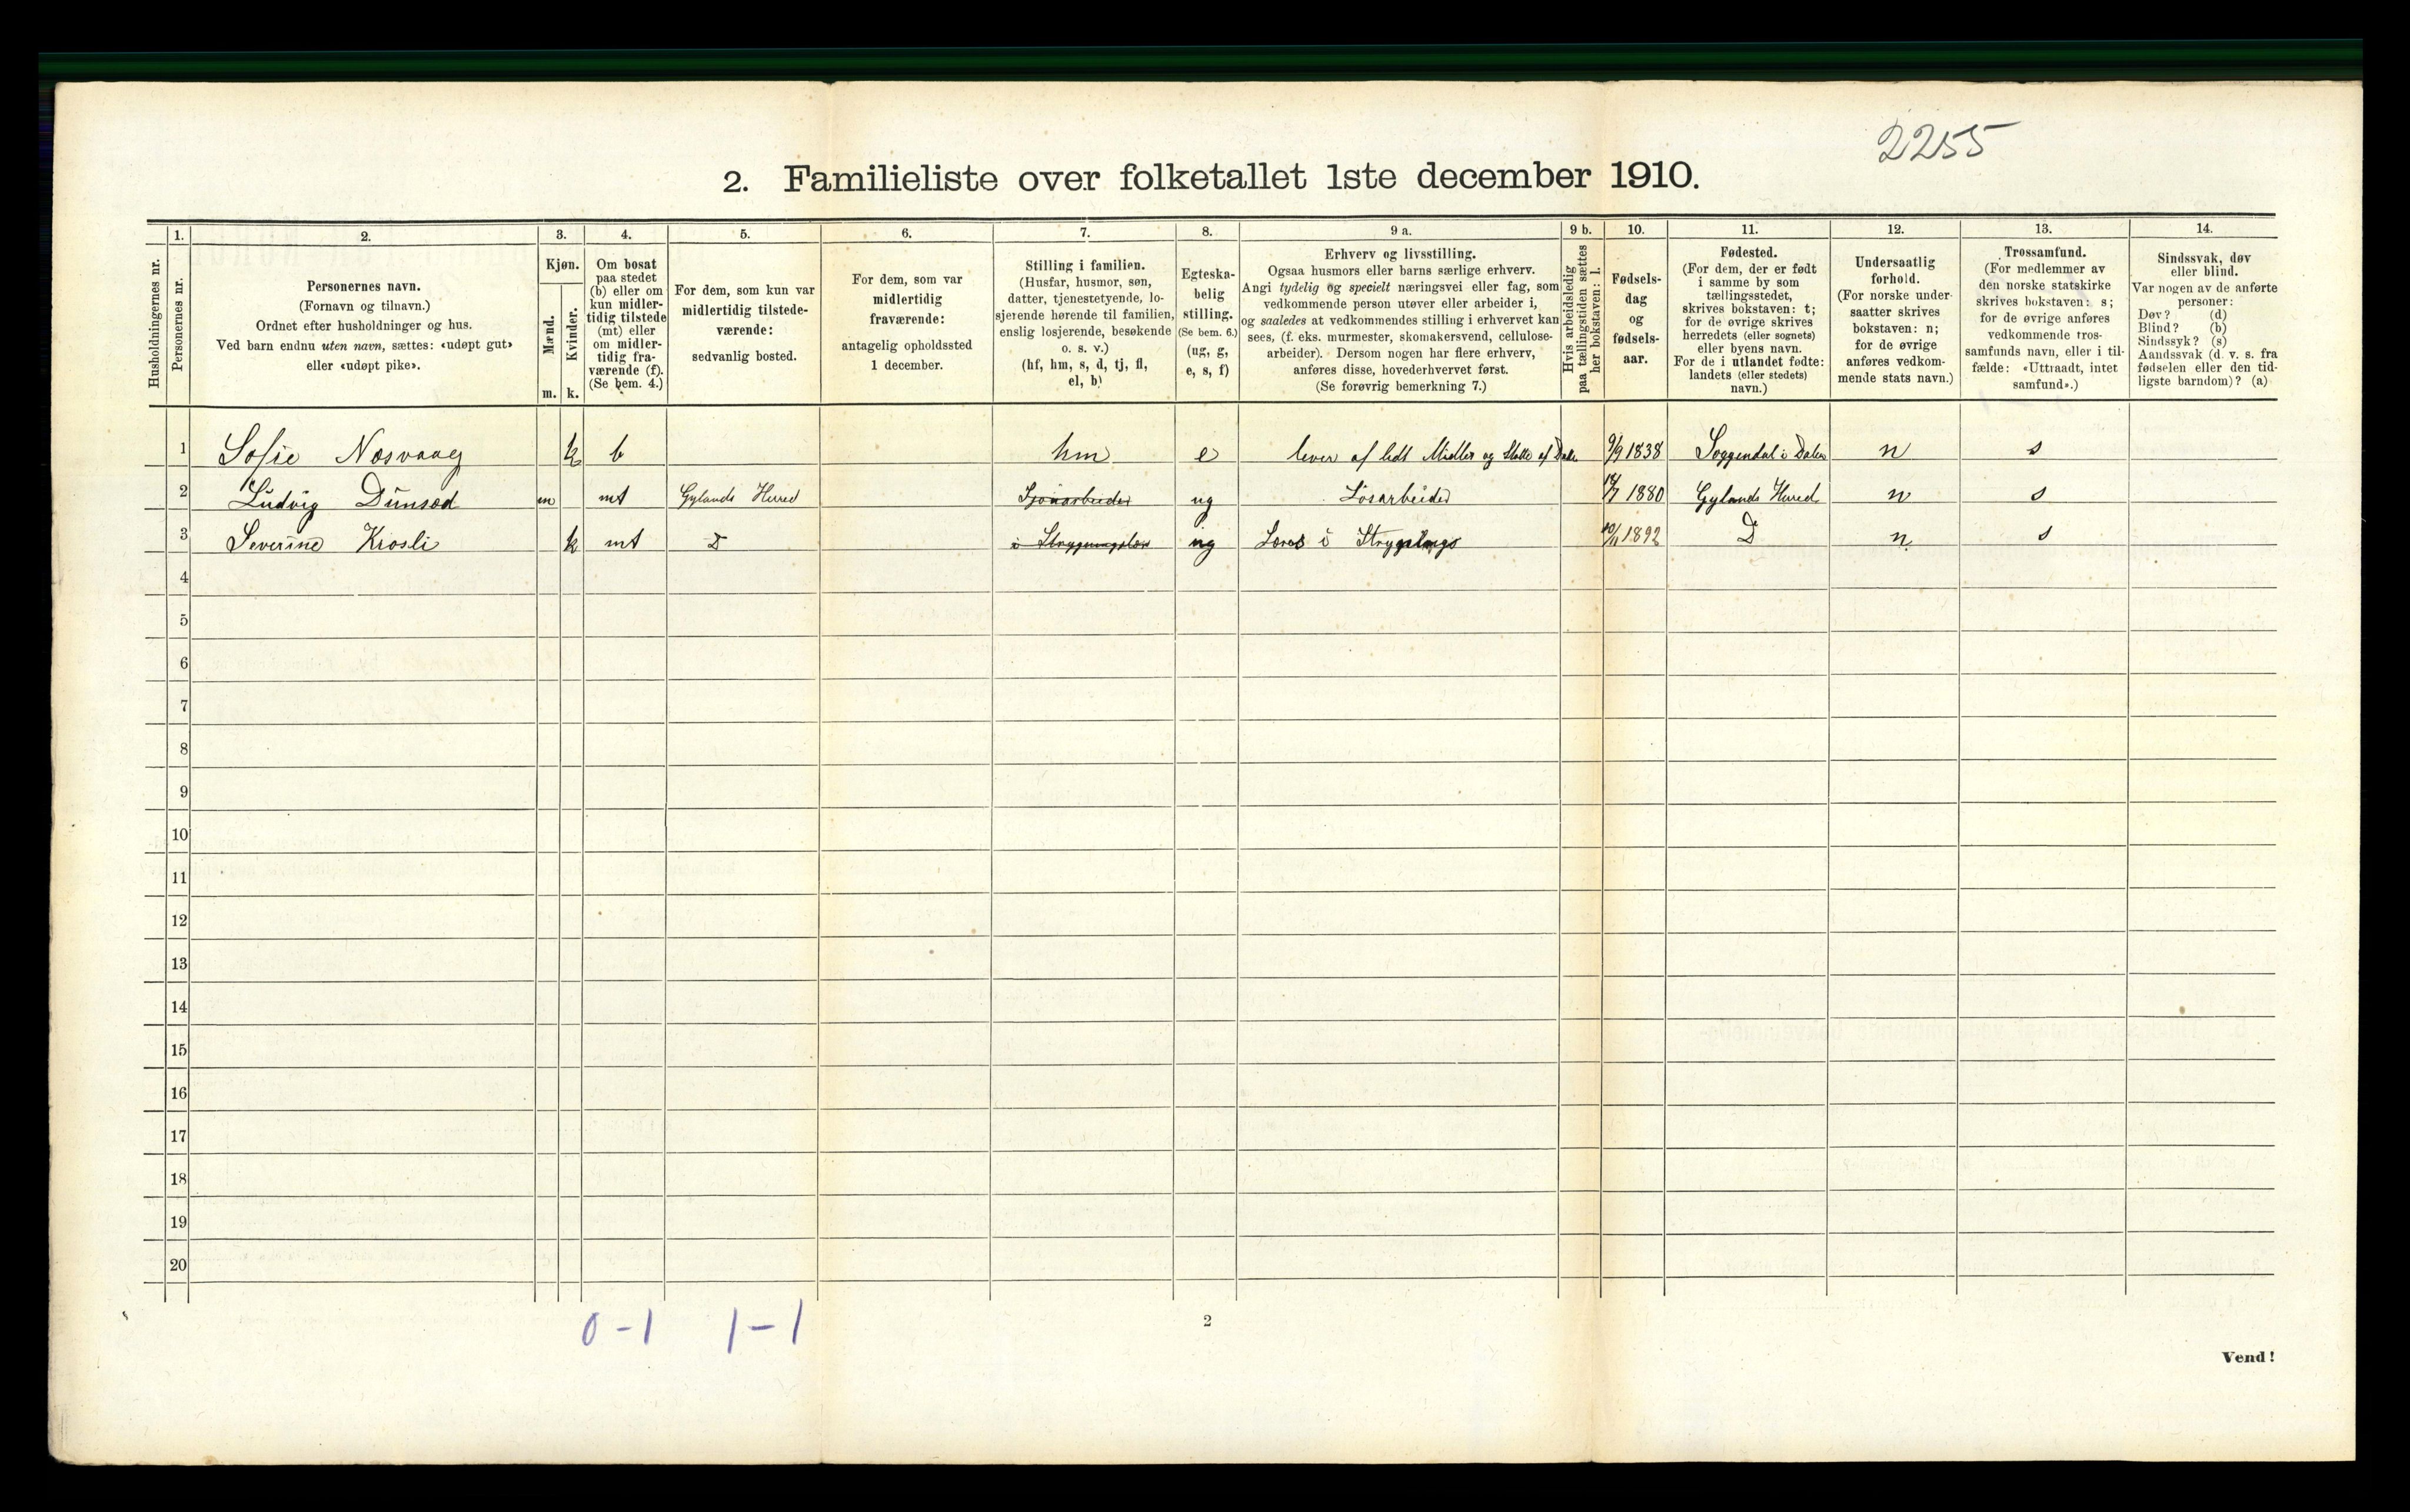 2255
2. Familieliste over folketallet 1ste december 1910.
Husholdningernes nr.
1.
Personernes nr.
2.
Personernes navn.
(Fornavn og tilnavn.)
Ordnet efter husholdninger og hus.
Ved barn endnu uten navn, sættes: «udøpt gut»
eller «udøpt pike».
3.
Kjøn.
Mænd.
Kvinder.
m. k.
4.
Om bosat
paa stedet
(b) eller om
kun midler-
tidig tilstede
(mt) eller
om midler-
tidig fra-
værende (f).
(Se bem. 4.)
5.
For dem, som kun var
midlertidig tilstede-
værende:
sedvanlig bosted.
6.
For dem, som var
midlertidig
fraværende:
antagelig opholdssted
1 december.
7.
Stilling i familien.
(Husfar, husmor, søn,
datter, tjenestetyende, lo-
sjerende hørende til familien,
enslig losjerende, besøkende
o. s. v.)
(hf, hm, s, d, tj, fl,
el, b)
8.
Egteska-
belig
stilling.
(Se bem. 6.)
(ug, g,
e, s, f)
9 a.
Erhverv og livsstilling.
Ogsaa husmors eller barns særlige erhverv.
Angi tydelig og specielt næringsvei eller fag, som
vedkommende person utøver eller arbeider i,
og saaledes at vedkommendes stilling i erhvervet kan
sees, (f. eks. murmester, skomakersvend, cellulose-
arbeider). Dersom nogen har flere erhverv,
anføres disse, hovederhvervet først.
(Se forøvrig bemerkning 7.)
9 b.
Hvis arbeidsledig
paa tællingstiden sættes
her bokstaven: l.
10.
Fødsels-
dag
og
fødsels-
aar.
11.
Fødested.
(For dem, der er født
i samme by som
tællingsstedet,
skrives bokstaven: t;
for de øvrige skrives
herredets (eller sognets)
eller byens navn.
For de i utlandet fødte:
landets (eller stedets)
navn.)
12.
Undersaatlig
forhold.
(For norske under-
saatter skrives
bokstaven: n;
for de øvrige
anføres vedkom-
mende stats navn.)
13.
Trossamfund.
(For medlemmer av
den norske statskirke
skrives bokstaven: s;
for de øvrige anføres
vedkommende tros-
samfunds navn, eller i til-
fælde: «Uttraadt, intet
samfund».)
14.
Sindssvak, døv
eller blind.
Var nogen av de anførte
personer:
Døv? (d)
Blind? (b)
Sindssyk? (s)
Aandssvak (d. v. s. fra
fødselen eller den tid-
ligste barndom)? (a)
1 Sofie Nesvaag k b hm e lever af lidt Midler og Støtte af 9/9 1838 Soggendal i Dalen n s
2 Ludvig Dunsæd m mt Gylands Herred Sjöuarbeider ug Løsarbeider 14/7 1880 Gylands Herred n s
3 Severine Krosli k mt D i ug Læres i 10/11 1892 D n s
4
5
6
7
8
9
10
11
12
13
14
15
16
17
18
19
20
0-1 1-1
2
Vend!